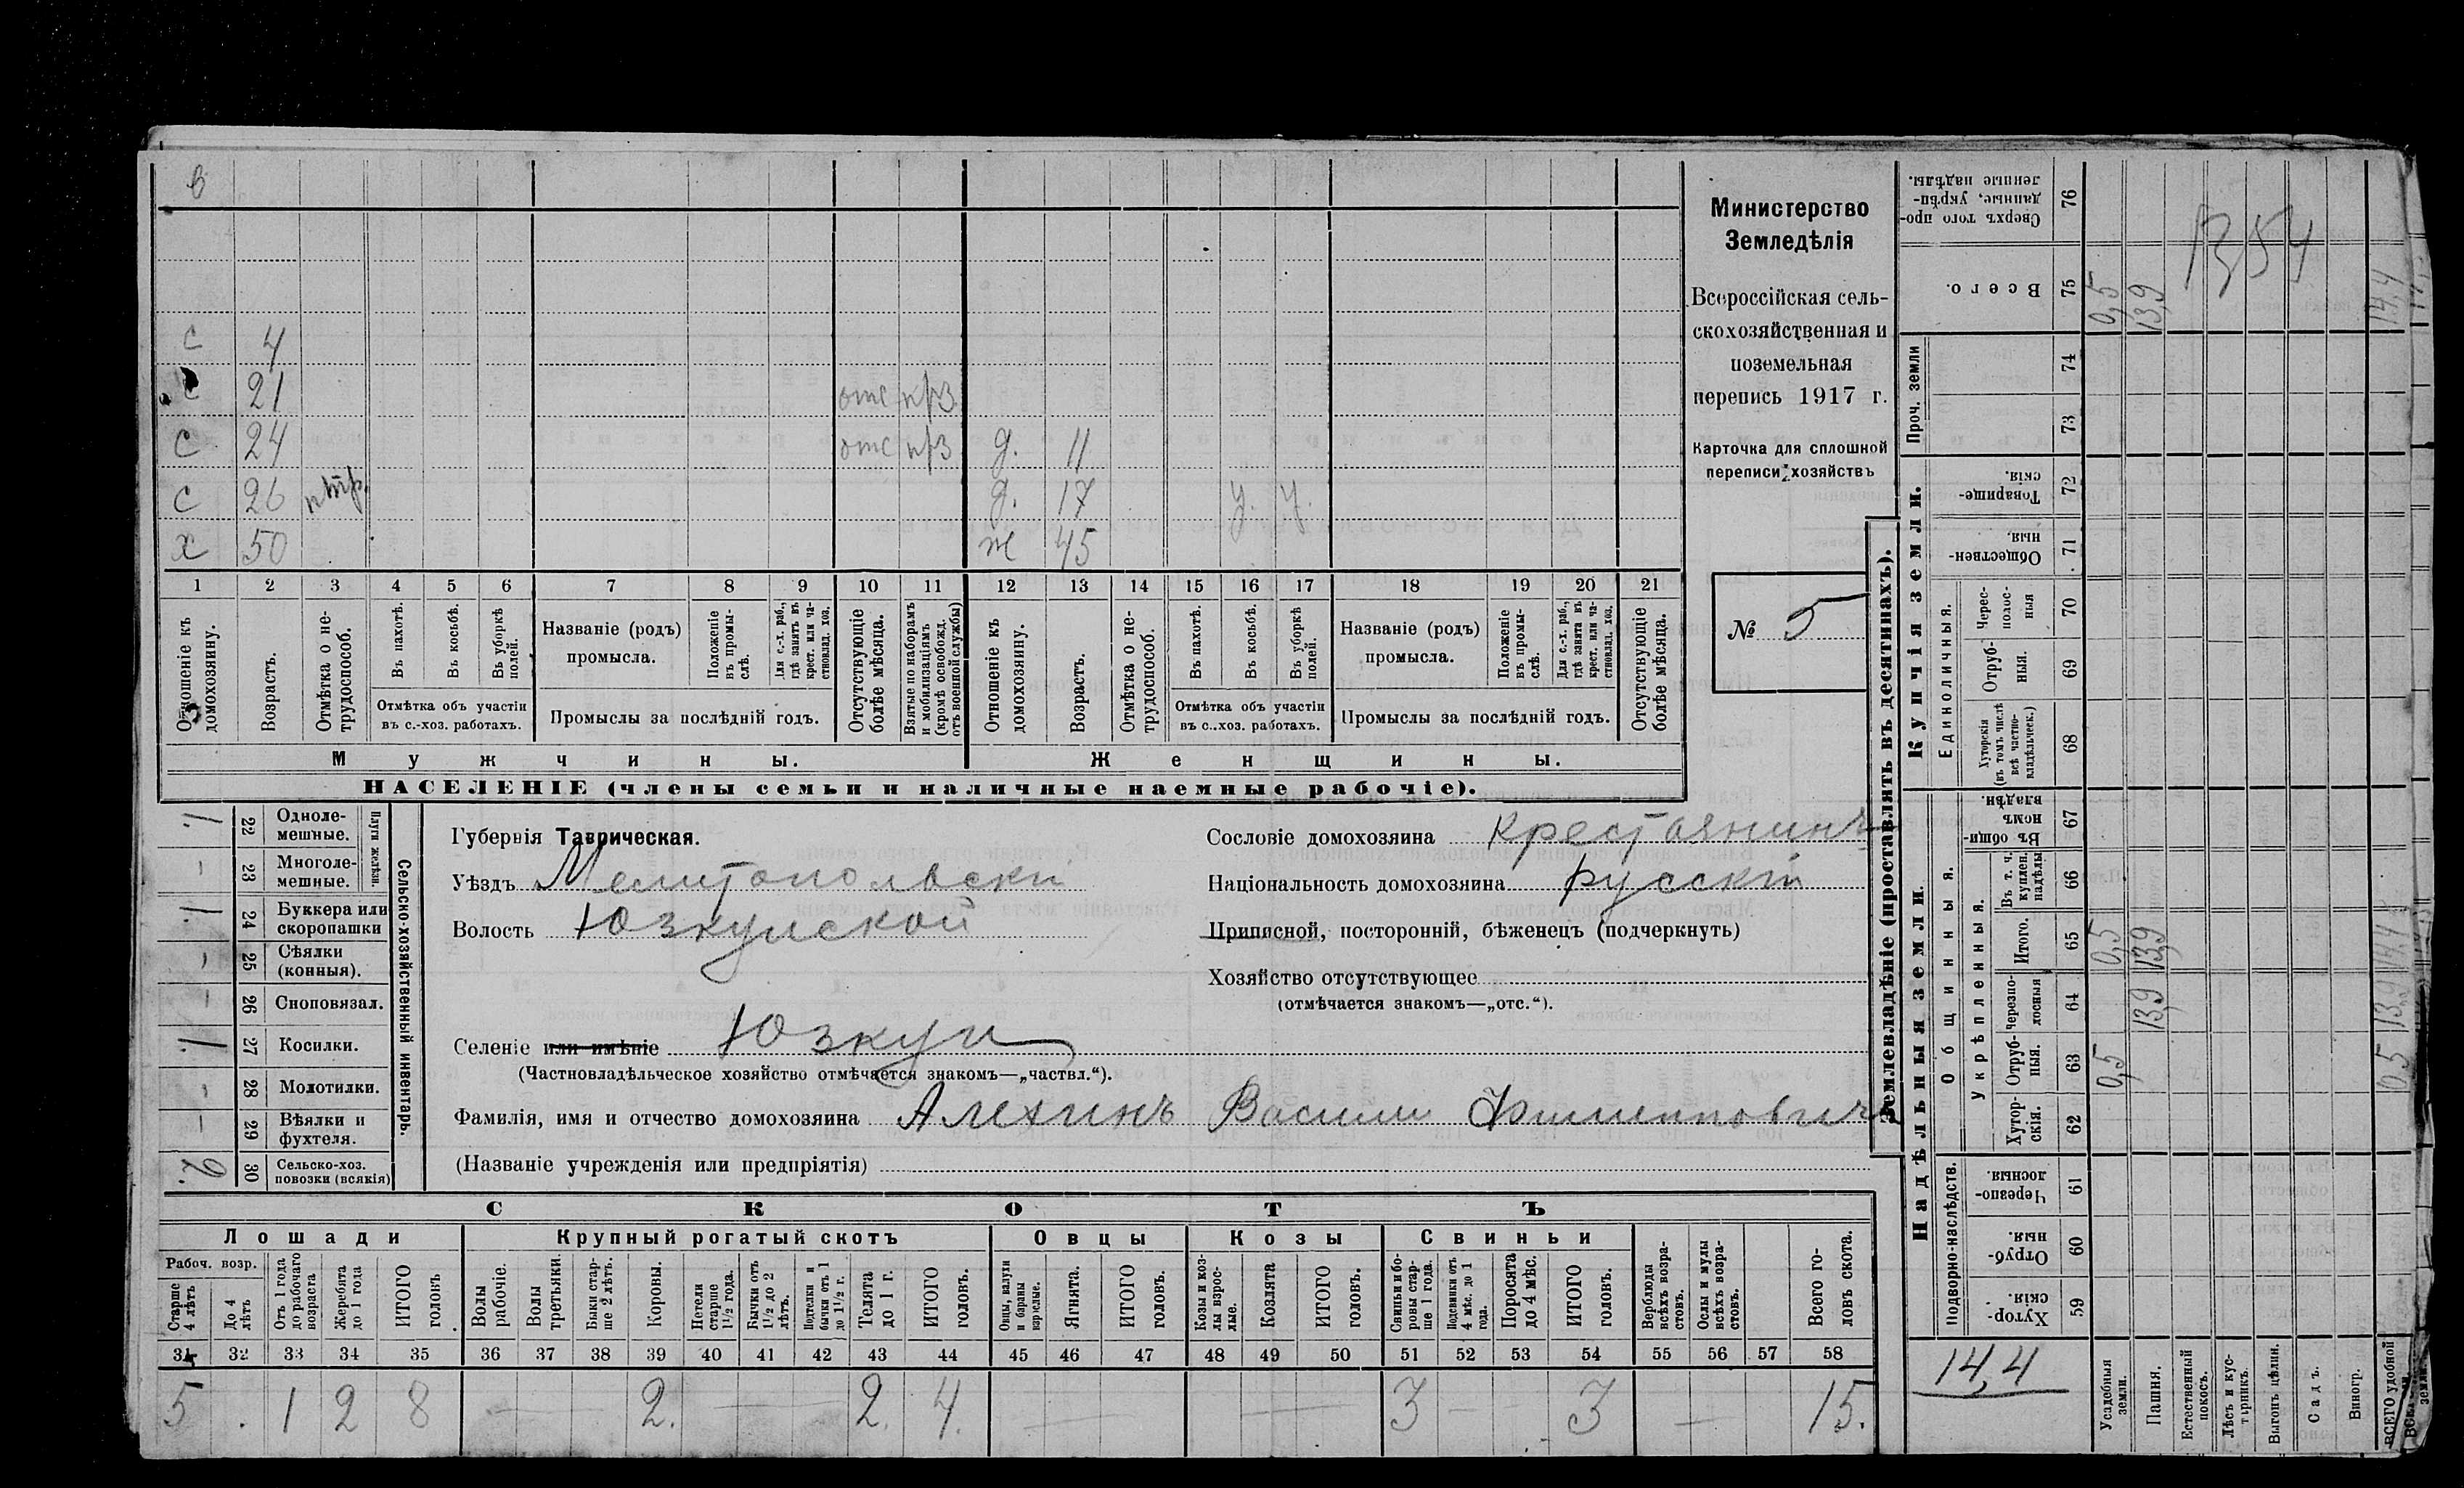 в
с 4
с 21 отс прз
с 24 отс прз д. 11
с 26 д. 17 у. у.
х 50 ж 45
1 2 3 4 5 6 7 8 9 10 11 12 13 14 15 16 17 18 19 20 21
Отношеніе къ домохозяину.
Возрастъ.
Отмѣтка о не-трудоспособ.
Въ пахотѣ.
Въ косьбѣ.
Въ уборкѣ полей.
Отмѣтка объ участіи
въ с.-хоз. работахъ.
Названіе (родъ)
промысла.
Положеніе въ промы-слѣ.
Для с.-х. раб., гдѣ занятъ въ крест. или ча-стновлад. хоз.
Промыслы за послѣдній годъ.
Отсутствующіе болѣе мѣсяца.
Взятые по наборамъ и мобилизаціямъ (кромѣ освобожд. отъ военной службы)
Отношеніе къ домохозяину.
Возрастъ.
Отмѣтка о не-трудоспособ.
Въ пахотѣ.
Въ косьбѣ.
Въ уборкѣ полей.
Отмѣтка объ участіи
въ с.-хоз. работахъ.
Названіе (родъ)
промысла.
Положеніе въ промы-слѣ.
Для с.-х. раб., гдѣ занята въ крест. или ча-стновлад. хоз.
Промыслы за послѣдній годъ.
Отсутствующіе болѣе мѣсяца.
Мужчины.
Женщины.
НАСЕЛЕНІЕ (члены семьи и наличные наемные рабочіе).
Министерство
Земледѣлія
Всероссійская сель-
скохозяйственная и
поземельная
перепись 1917 г.
Карточка для сплошной
переписи хозяйствъ
№ 5
Сельско-хозяйственный инвентарь.
Плуги желѣзн.
1 22 Одноле-мешные.
– 23 Многоле-мешные.
1 24 Буккера или скоропашки
– 25 Сѣялки (конныя).
– 26 Сноповязал.
1 27 Косилки.
– 28 Молотилки.
– 29 Вѣялки и фухтеля.
2. 30 Сельско-хоз. повозки (всякія)
Губернія Таврическая.
Уѣздъ Мелитопольски
Волость Юзкуиской
Селеніе или имѣніе Юзкуи
(Частновладѣльческое хозяйство отмѣчается знакомъ—„частвл.“).
Фамилія, имя и отчество домохозяина Алехинъ Васили Филипповичъ
(Названіе учрежденія или предпріятія)
Сословіе домохозяина Крестьянинъ
Національность домохозяина русскій
Приписной, посторонній, бѣженецъ (подчеркнуть)
Хозяйство отсутствующее
(отмѣчается знакомъ—„отс.“).
СКОТЪ
Лошади
Крупный рогатый скотъ
Овцы
Козы
Свиньи
Рабоч. возр.
Старше 4 лѣтъ
До 4 лѣтъ
Отъ 1 года до рабочаго возраста
Жеребята до 1 года
ИТОГО головъ
Волы рабочіе.
Волы третьяки.
Быки стар-ше 2 лѣтъ.
Коровы.
Нетели старше 1½ года.
Бычки отъ 1½ до 2 лѣтъ.
Подтелки и бычки отъ 1 до 1½ г.
Телята до 1 г.
ИТОГО головъ.
Овцы, валухи и бараны взрослые.
Ягнята.
ИТОГО головъ.
Козы и коз-лы взрос-лые.
Козлята
ИТОГО головъ.
Свиньи и бо-ровы стар-ше 1 года.
Подсвинки отъ 4 мѣс. до 1 года.
Поросята до 4 мѣс.
ИТОГО головъ.
Верблюды всѣхъ возра-стовъ.
Ослы и мулы всѣхъ возра-стовъ.
Всего го-ловъ скота.
31 32 33 34 35 36 37 38 39 40 41 42 43 44 45 46 47 48 49 50 51 52 53 54 55 56 57 58
5 . 1 2 8 – 2. – 2. 4. – – 3 – – 3 – 15.
Землевладѣніе (проставлять въ десятинахъ).
Надѣльныя земли.
Купчія земли.
Проч. земли
Подворно-наслѣдств.
Общинныя.
Укрѣпленныя.
Единоличныя.
Хутор-скія. 59
Отруб-ныя. 60
Черезпо-лосныя 61
Хутор-скія. 62
Отруб-ныя. 63 0,5
Черезпо-лосныя 64 13,9
Итого. 65 0,5 13,9
Въ т. ч. куплен. надѣлы 66
Въ общи-номъ владѣн. 67
Хуторскія (въ томъ числѣ всѣ частно-владѣльческ.) 68
Отруб-ныя. 69
Черес-полос-ныя 70
Обществен-ныя. 71
Товарище-скія. 72
73
74
Всего. 75 0,5 13,9 14,4
Сверхъ того про-данные, укрѣп-ленные надѣлы. 76
1354
14,4
Усадебныя земли.
Пашня.
Естественный покосъ.
Лѣсъ и кус-тарникъ.
Выгонъ цѣлин.
Садъ.
Виногр.
ВСЕГО удобной земли